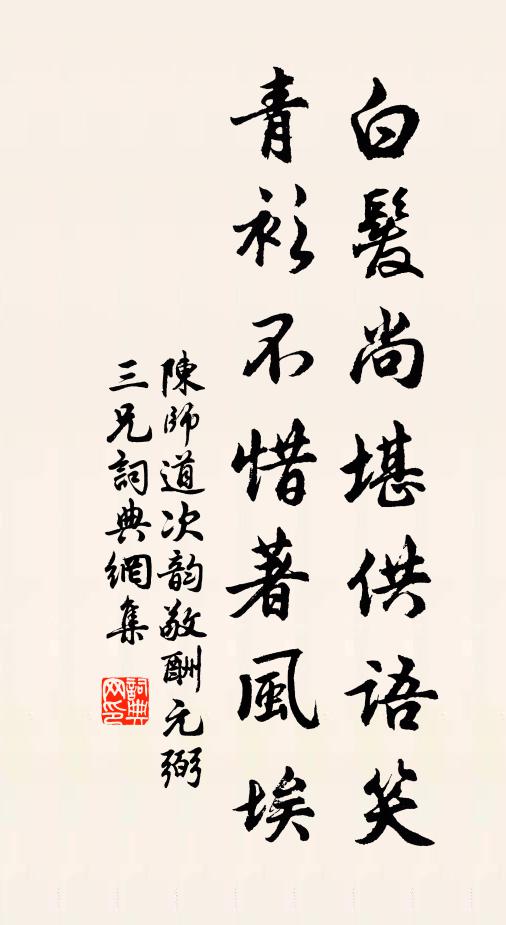 白髮尚堪供語笑
青衫不惜著風埃
陳師道次韵敬酬元弼
三兄詞典網集
詞典
网印